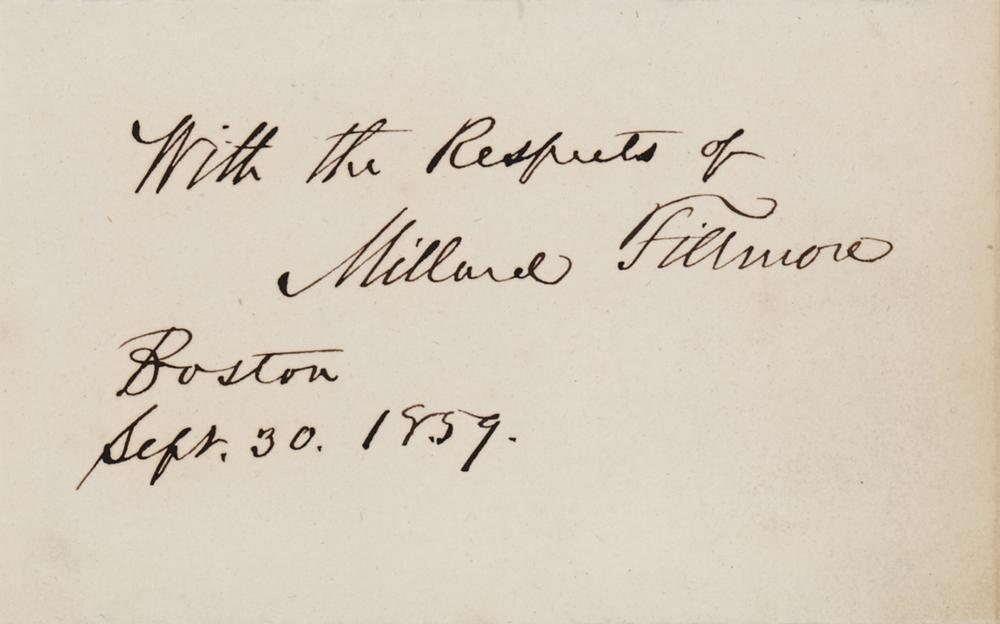 With the Respects of
Millard Fillmore
Boston
Sept. 30. 1859.